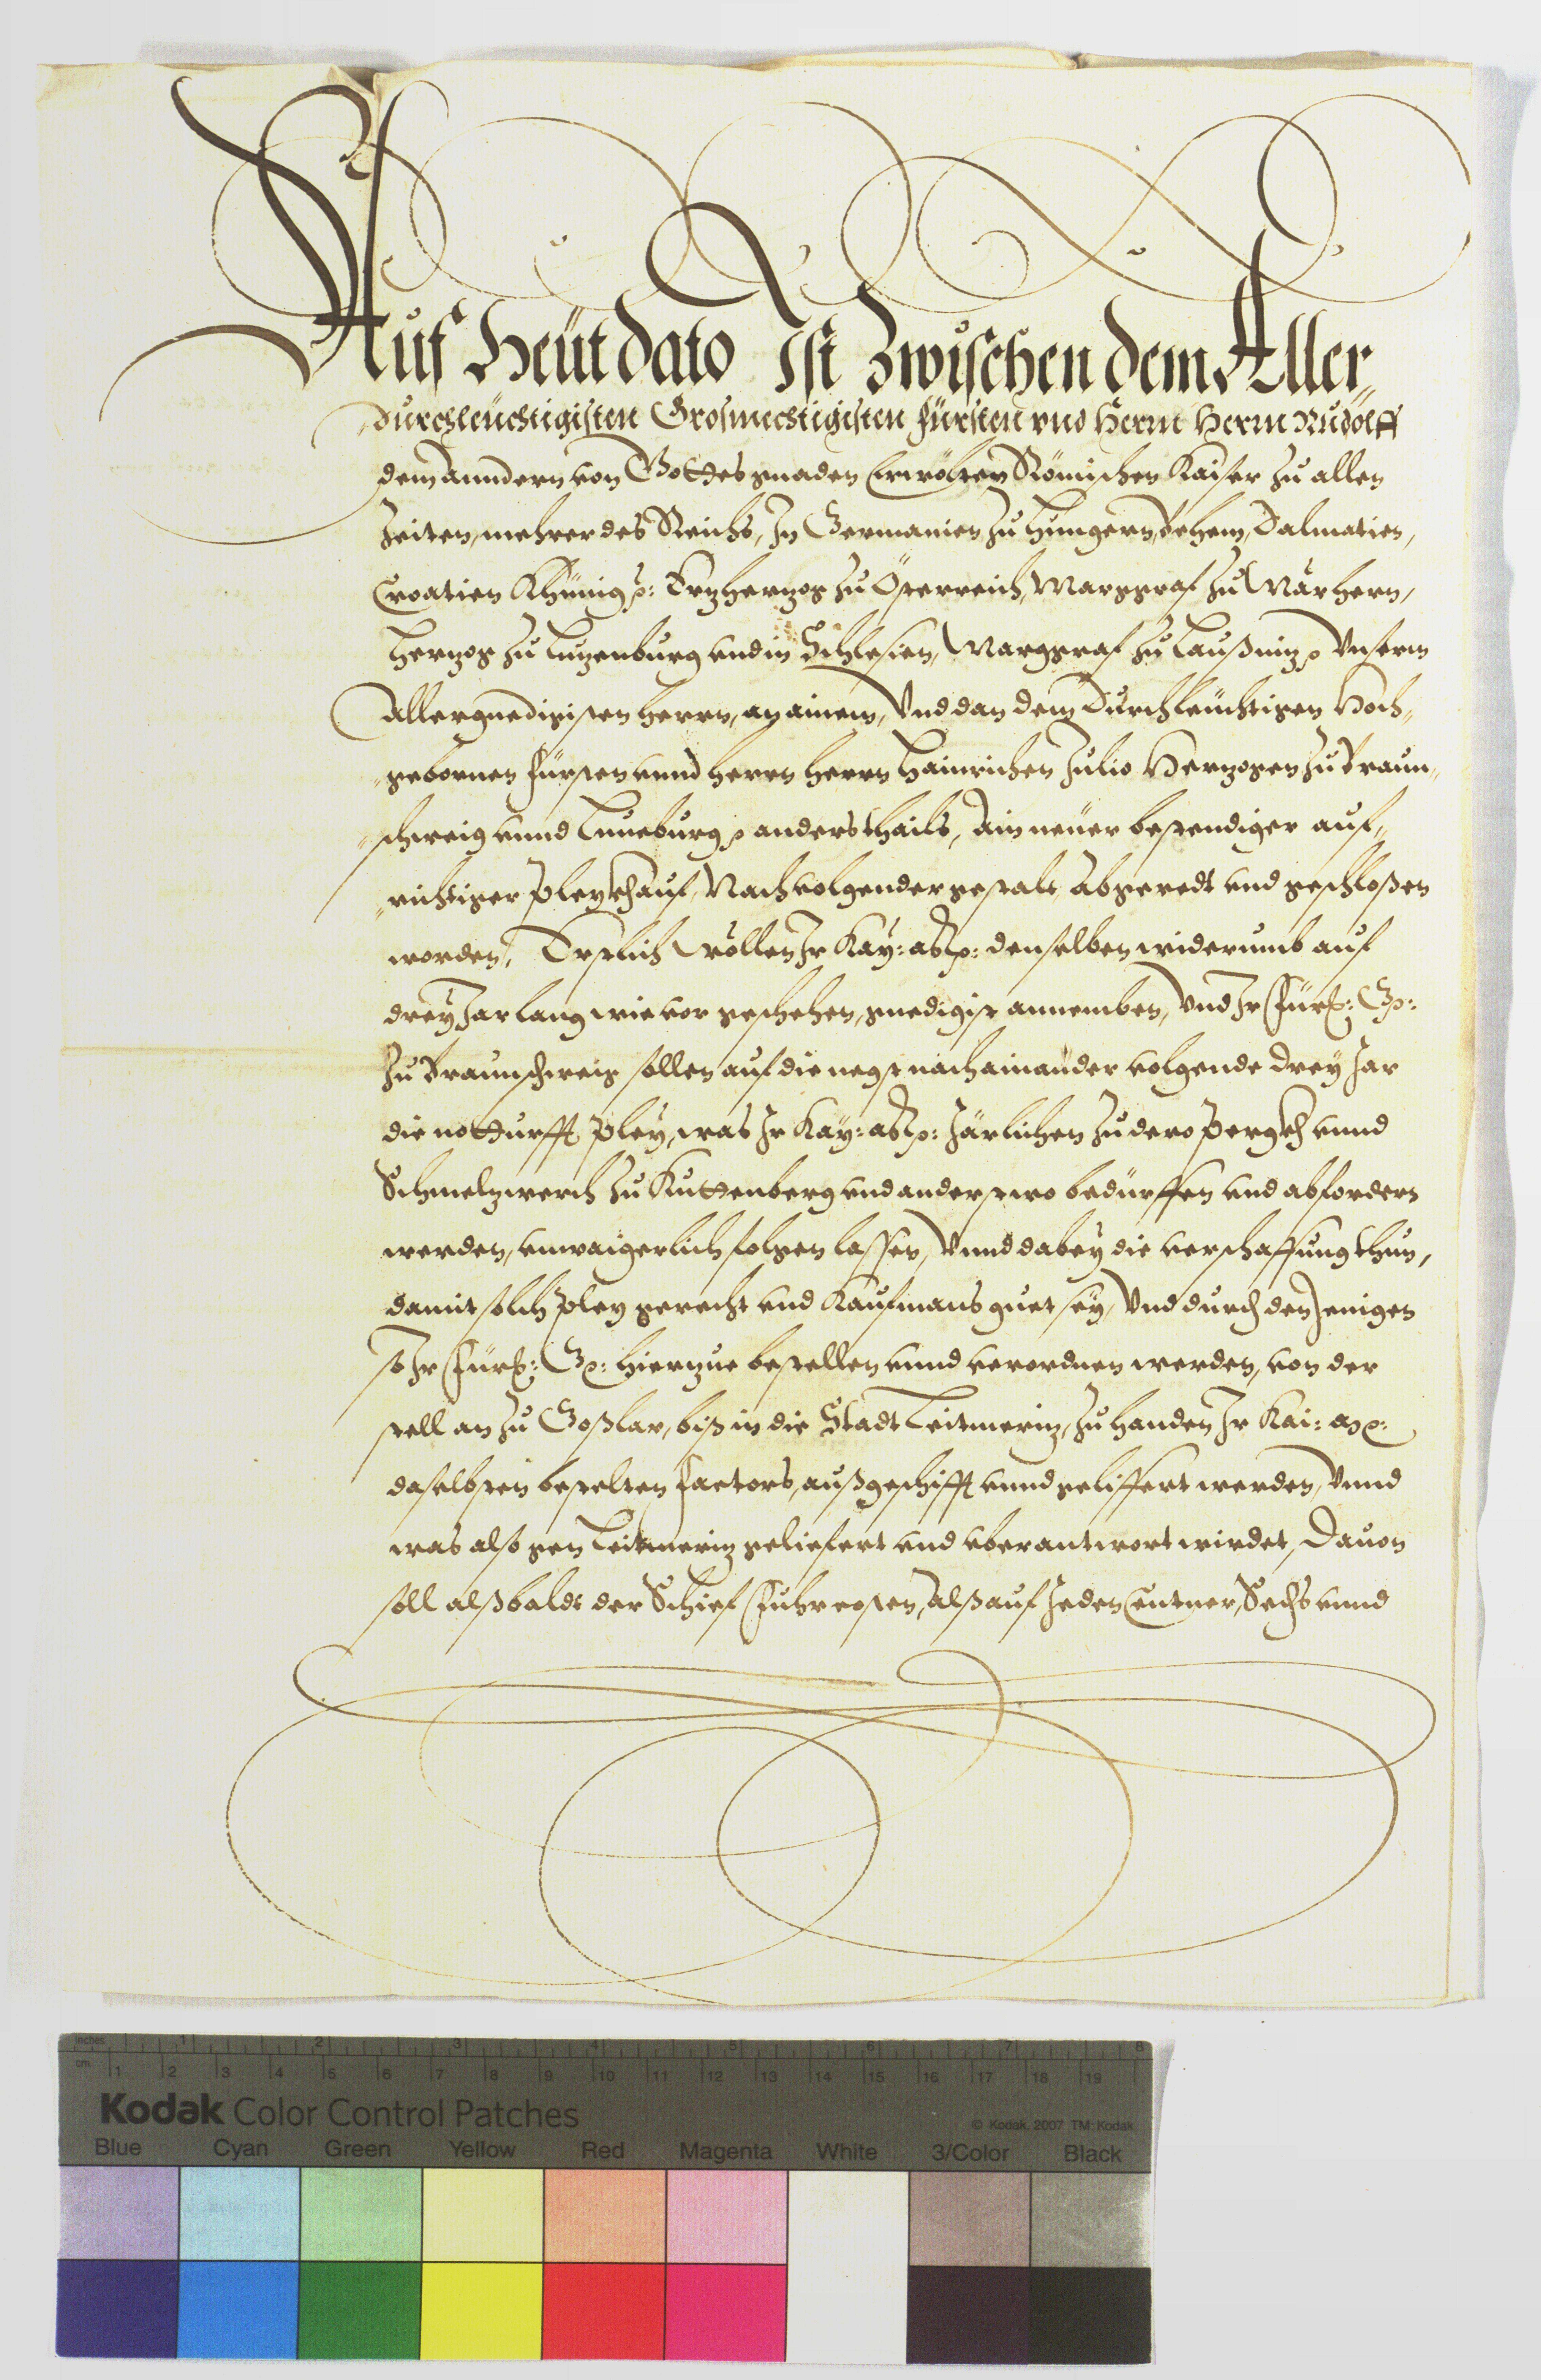 Auf Heüt dato Ist Zwischen dem Aller„
„durchleüchtigisten Grosmechtigisten Fürsten vnd Herrn Herrn Rudolff
dem Anndern von Gottes gnaden Erwölten Römischen Kaiser zu allen
Zeiten, mehrer des Reichs, In Germanien zu Hungern, Behem, Dalmatien,
Croatien Khünig p: Ertzhertzog zu Österreich, Marggraf zu Märhern,
Hertzog zu Lutzenburg vnd in Schlesien, Marggraf zu Laußnitz p Vnserm
Allergnedigisten Herrn, an ainem, Vnd dan dem Durchleüchtigen Hoch„
„gebornen Fürsten vnnd Herrn Herrn Hainrichen Julio Hertzogen zu Braun„
„schweig vnnd Lüneburg p anders thails, Ain neüer bestendiger auf„
„richtiger Pleykhauf, Nachvolgender gestalt, abgeredt vnd geschloßen
worden, Erstlich Wöllen Ir Kay: Mt: denselben widerumb auf
drey Jar lang wie vor geschehen, gnedigist annemben, Vnd Ir Fürstl: Gn:
zu Braunschweig sollen auf die negst nach ainander volgende drey Jar
die notturfft Pley, was Ir Kay: Mt: Järlichen zu dero Pergkh vnnd
Schmeltzwerch zu Kuttenberg vnd anderstwo bedürffen vnd abfordern
werden, vnwaigerlich folgen lassen, Vnnd dabey die verschaffung thun,
damit solch Pley gerecht vnd Kaufmans guet sey, Vnd durch den Jenigen
so Ir Fürstl: Gn: hierzue bestellen vnnd verordnen werden, von der
stell an zu Goßlar, biß in die Stadt Leitmeritz, zu handen Ir Kai: Mt:
daselbsten bestelten Factors, außgeschifft vnnd geliffert werden, Vnnd
was also gen Leitmeritz geliefert vnd vberantwort wirdet, Dauon
soll alßbaldt der Schief Fuhrcosten, Alß auf Jeden Centner, Sechs vnnd
inches 1 2 3 4 5 6 7 8
cm 1 2 3 4 5 6 7 8 9 10 11 12 13 14 15 16 17 18 19
Kodak Color Control Patches
© Kodak, 2007 TM: Kodak
Blue Cyan Green Yellow Red Magenta White 3/Color Black